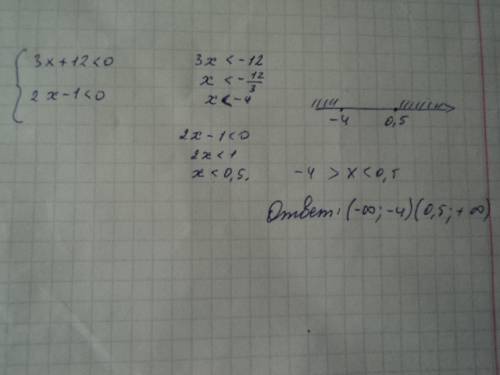 3x+12<0
2x-1<0
3x < -12
x < -12/3
x < -4
2x-1<0
2x<1
x<0,5.
-4 0,5
-4 > x < 0,5
Ответ: (-∞; -4)(0,5; +∞)